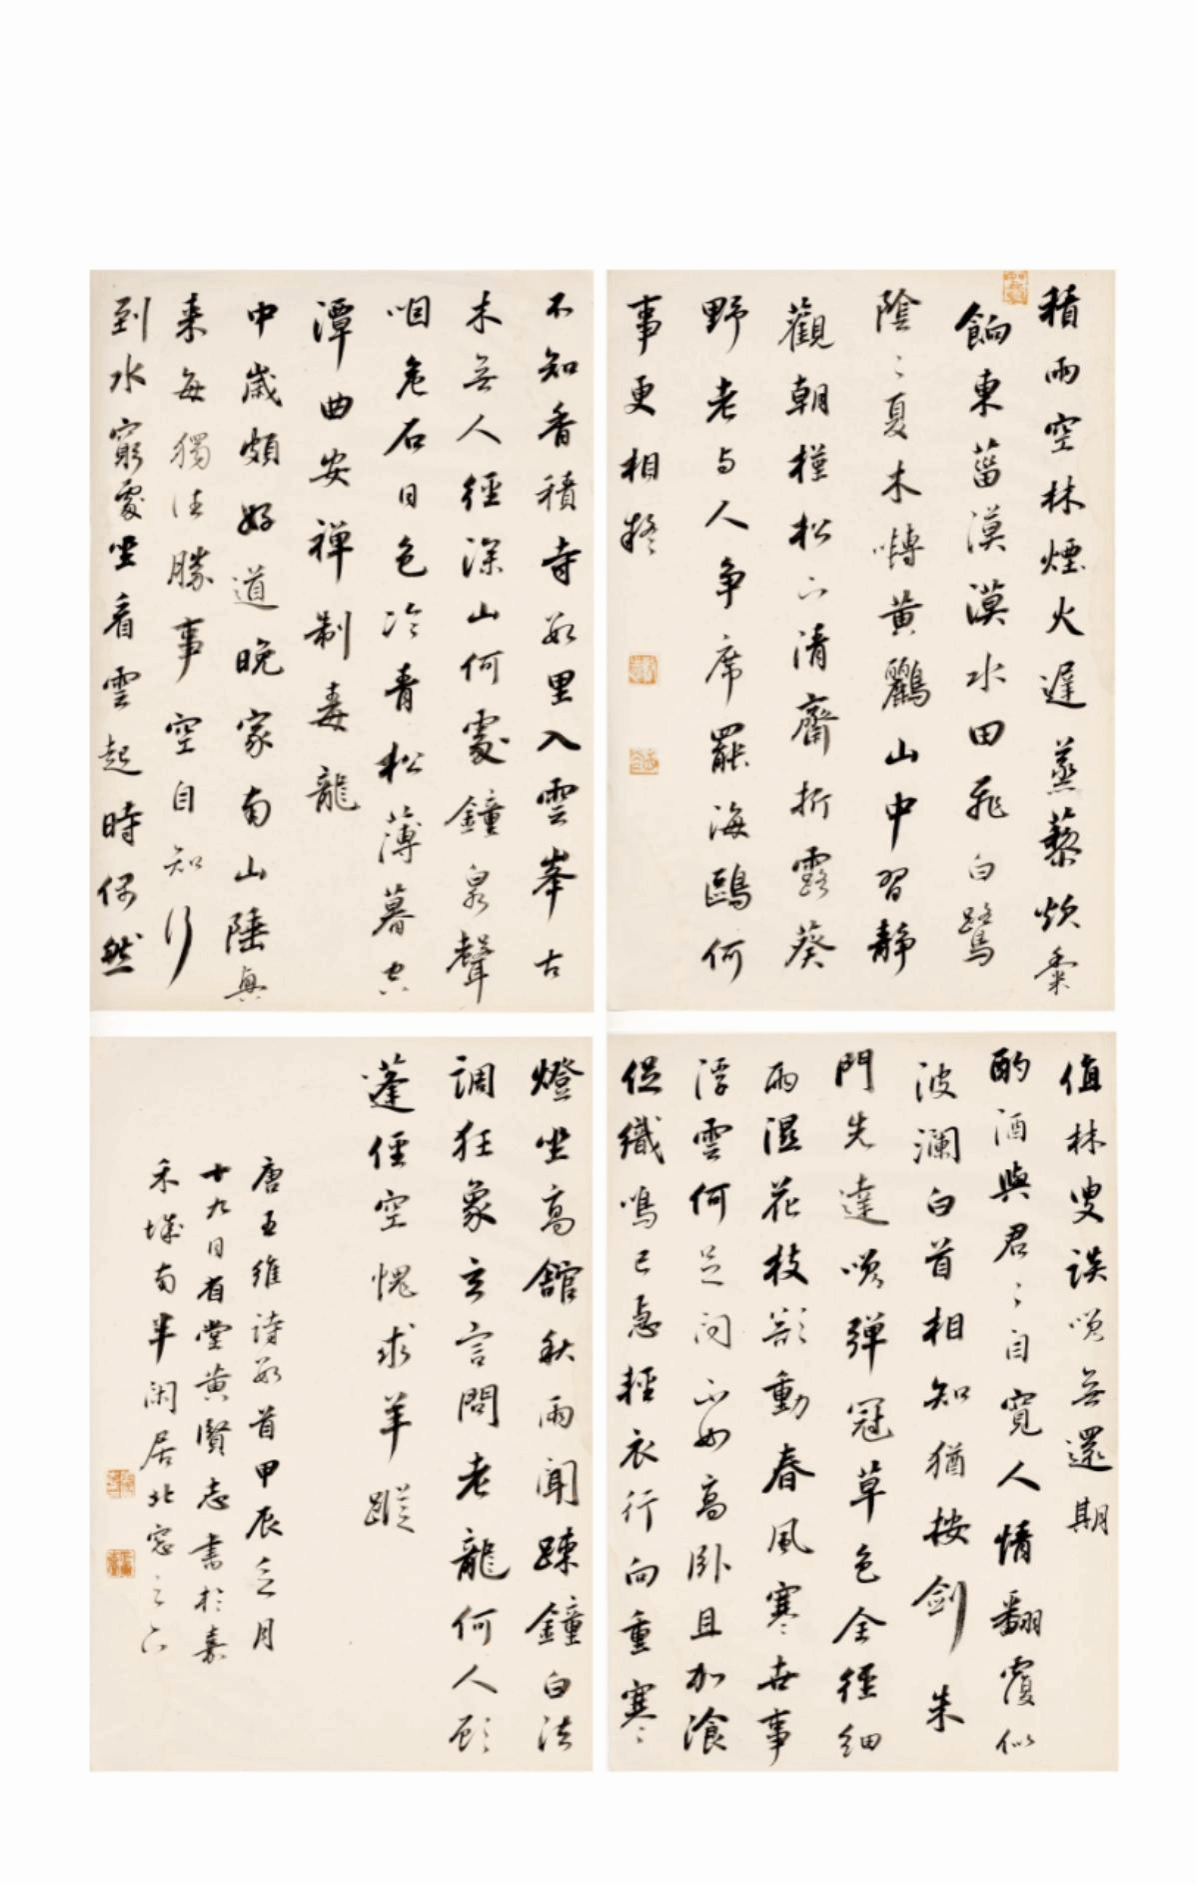 積雨空林煙火遲蒸藜炊黍
餉東菑漠漠水田飛白鷺
陰〻夏木囀黃鸝山中習静
觀朝槿松下清齋折露葵
野老与人争席罷海鷗何
事更相疑
不知香積寺數里入雲峯古
木無人徑深山何處鐘泉聲
咽危石日色冷青松薄暮空
潭曲安禅制毒龍
中歲頗好道晚家南山陲興
来每獨往勝事空自知行
到水窮處坐看雲起時偶然
值林叟談笑無還期
酌酒與君〻自寬人情翻覆似
波瀾白首相知猶按剑朱
門先達笑弹冠草色全徑細
雨濕花枝欲動春風寒世事
浮雲何足问不如高卧且加飡
促織鳴已急輕衣行向重寒
燈坐高舘秋雨聞踈鐘白法
調狂象玄言問老龍何人顧
蓬徑空愧求羊蹤
唐王維诗數首甲辰三月
十九日省堂黄賢志書於嘉
禾城南半闲居北窓之下